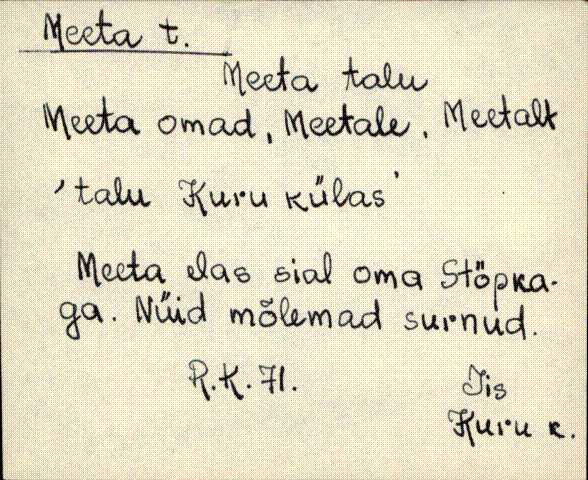 Meeta t.
Meeta talu
Meeta omad, Meetale, Meetalt
'talu Kuru külas'
Meeta elas sial oma Stöpka-
ga. Nüid mõlemad surnud.
R.K. 71.
Jis
Kuru k.